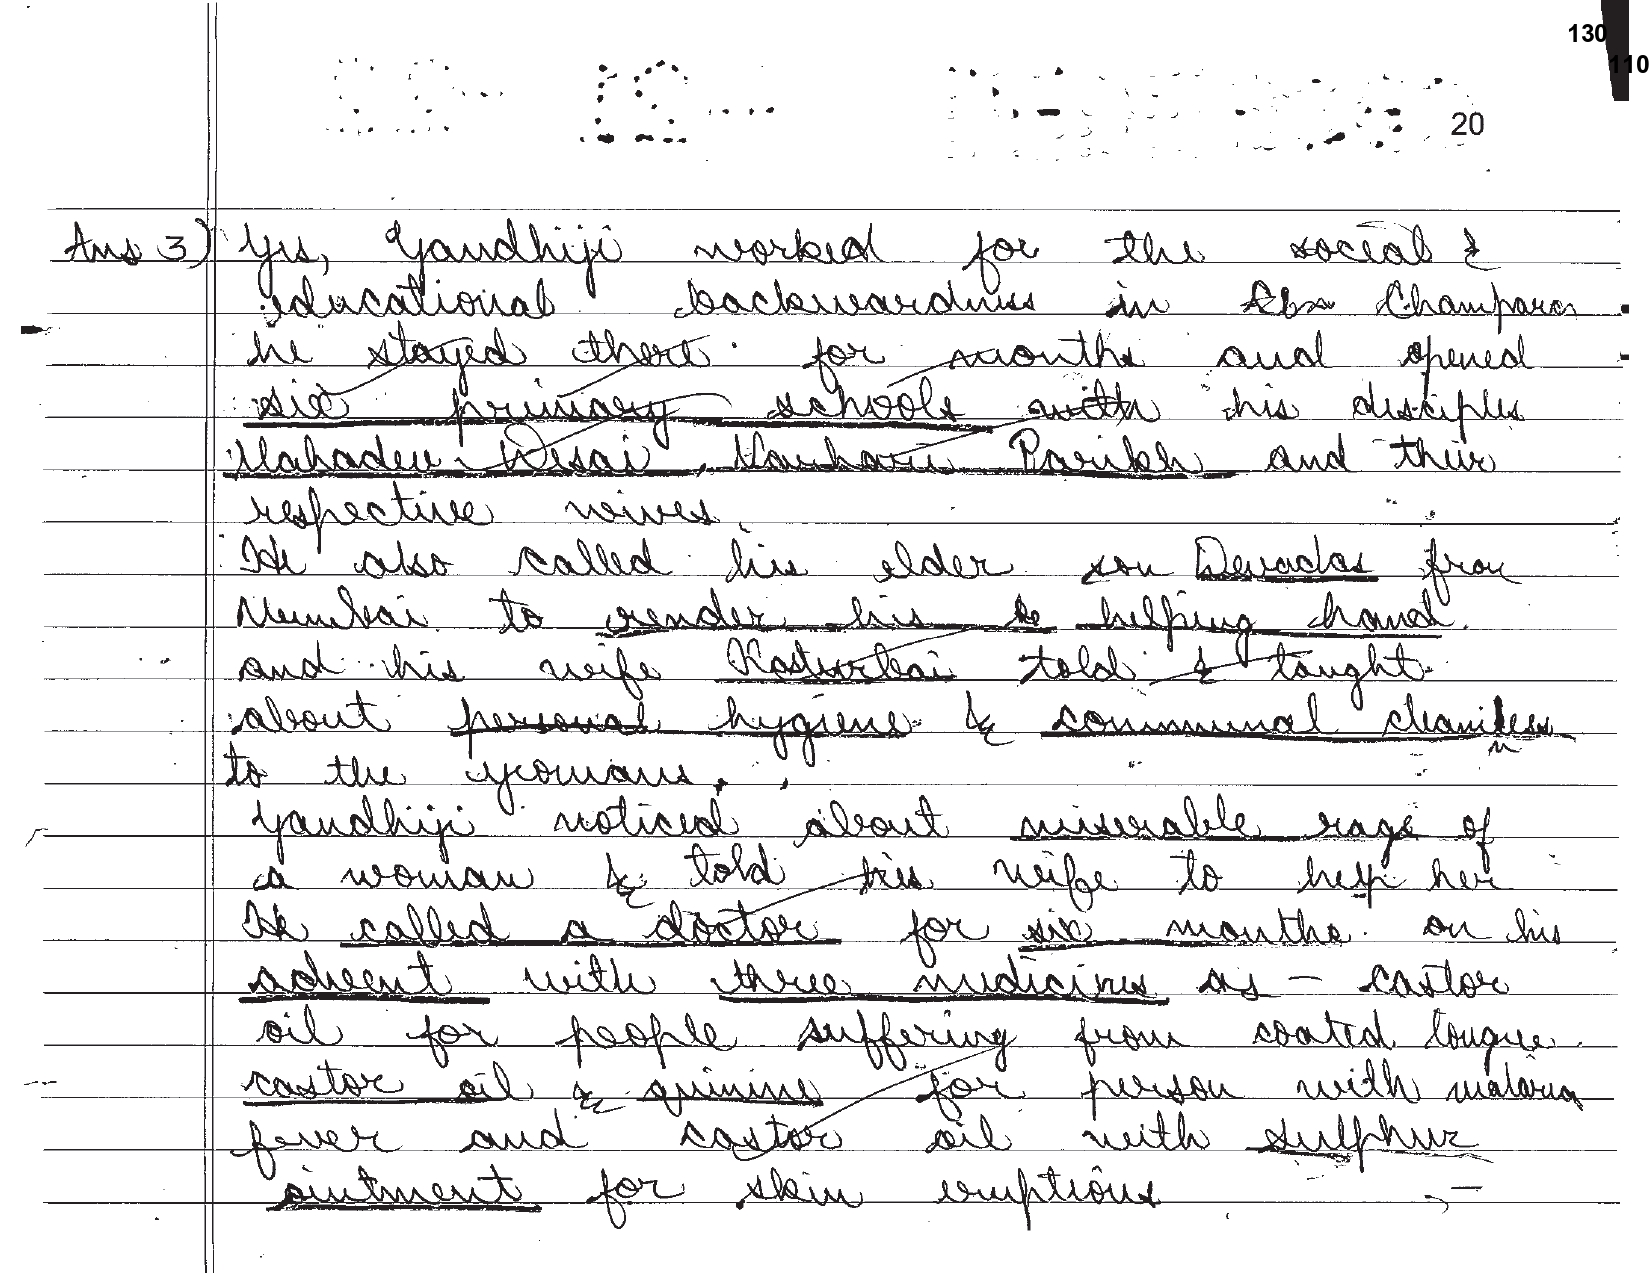 130
110
20
Ans 3) Yes, Gandhiji worked for the social &
educational backwardness in Champaran
he stayed there for months and opened
six primary schools with his disciples
Mahadev Desai, Narhari Parikh and their
respective wives.
He also called his elder son Devadas from
Mumbai to render his helping hand.
and his wife Kasturbai told & taught
about personal hygiene & communal cleanliess
n
to the yeomans.
Gandhiji noticed about miserable rags of
a woman & told his wife to help her
He called a doctor for six months on his
advent with three medicines as – castor
oil for people suffering from coated tongue.
castor oil & quinine for person with malaria
fever and castor oil with sulphur
ointment for skin eruptions